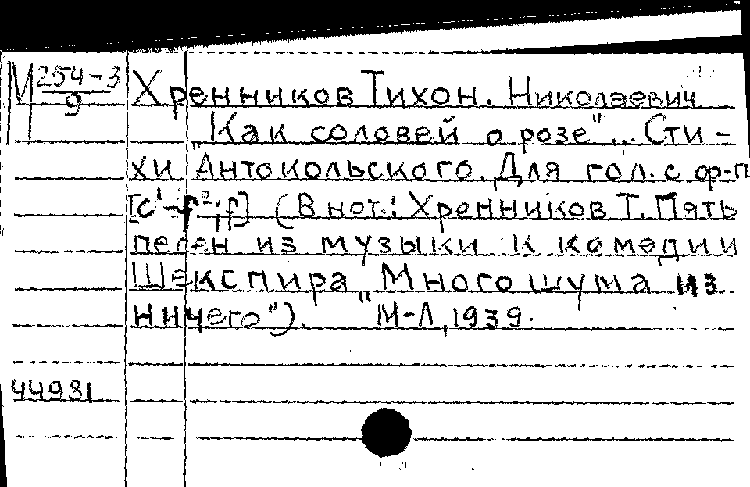 М 254-3/9 Хренников Тихон. Николаевич
„Как соловей о розе"... Сти-
хи Антокольского. Для гол. с ф-п
[c¹-f²; f] (В нот.: Хренников Т. Пять
песен из музыки к комедии
Шекспира „Много шума из
ничего"). М-Л, 1939.
44981